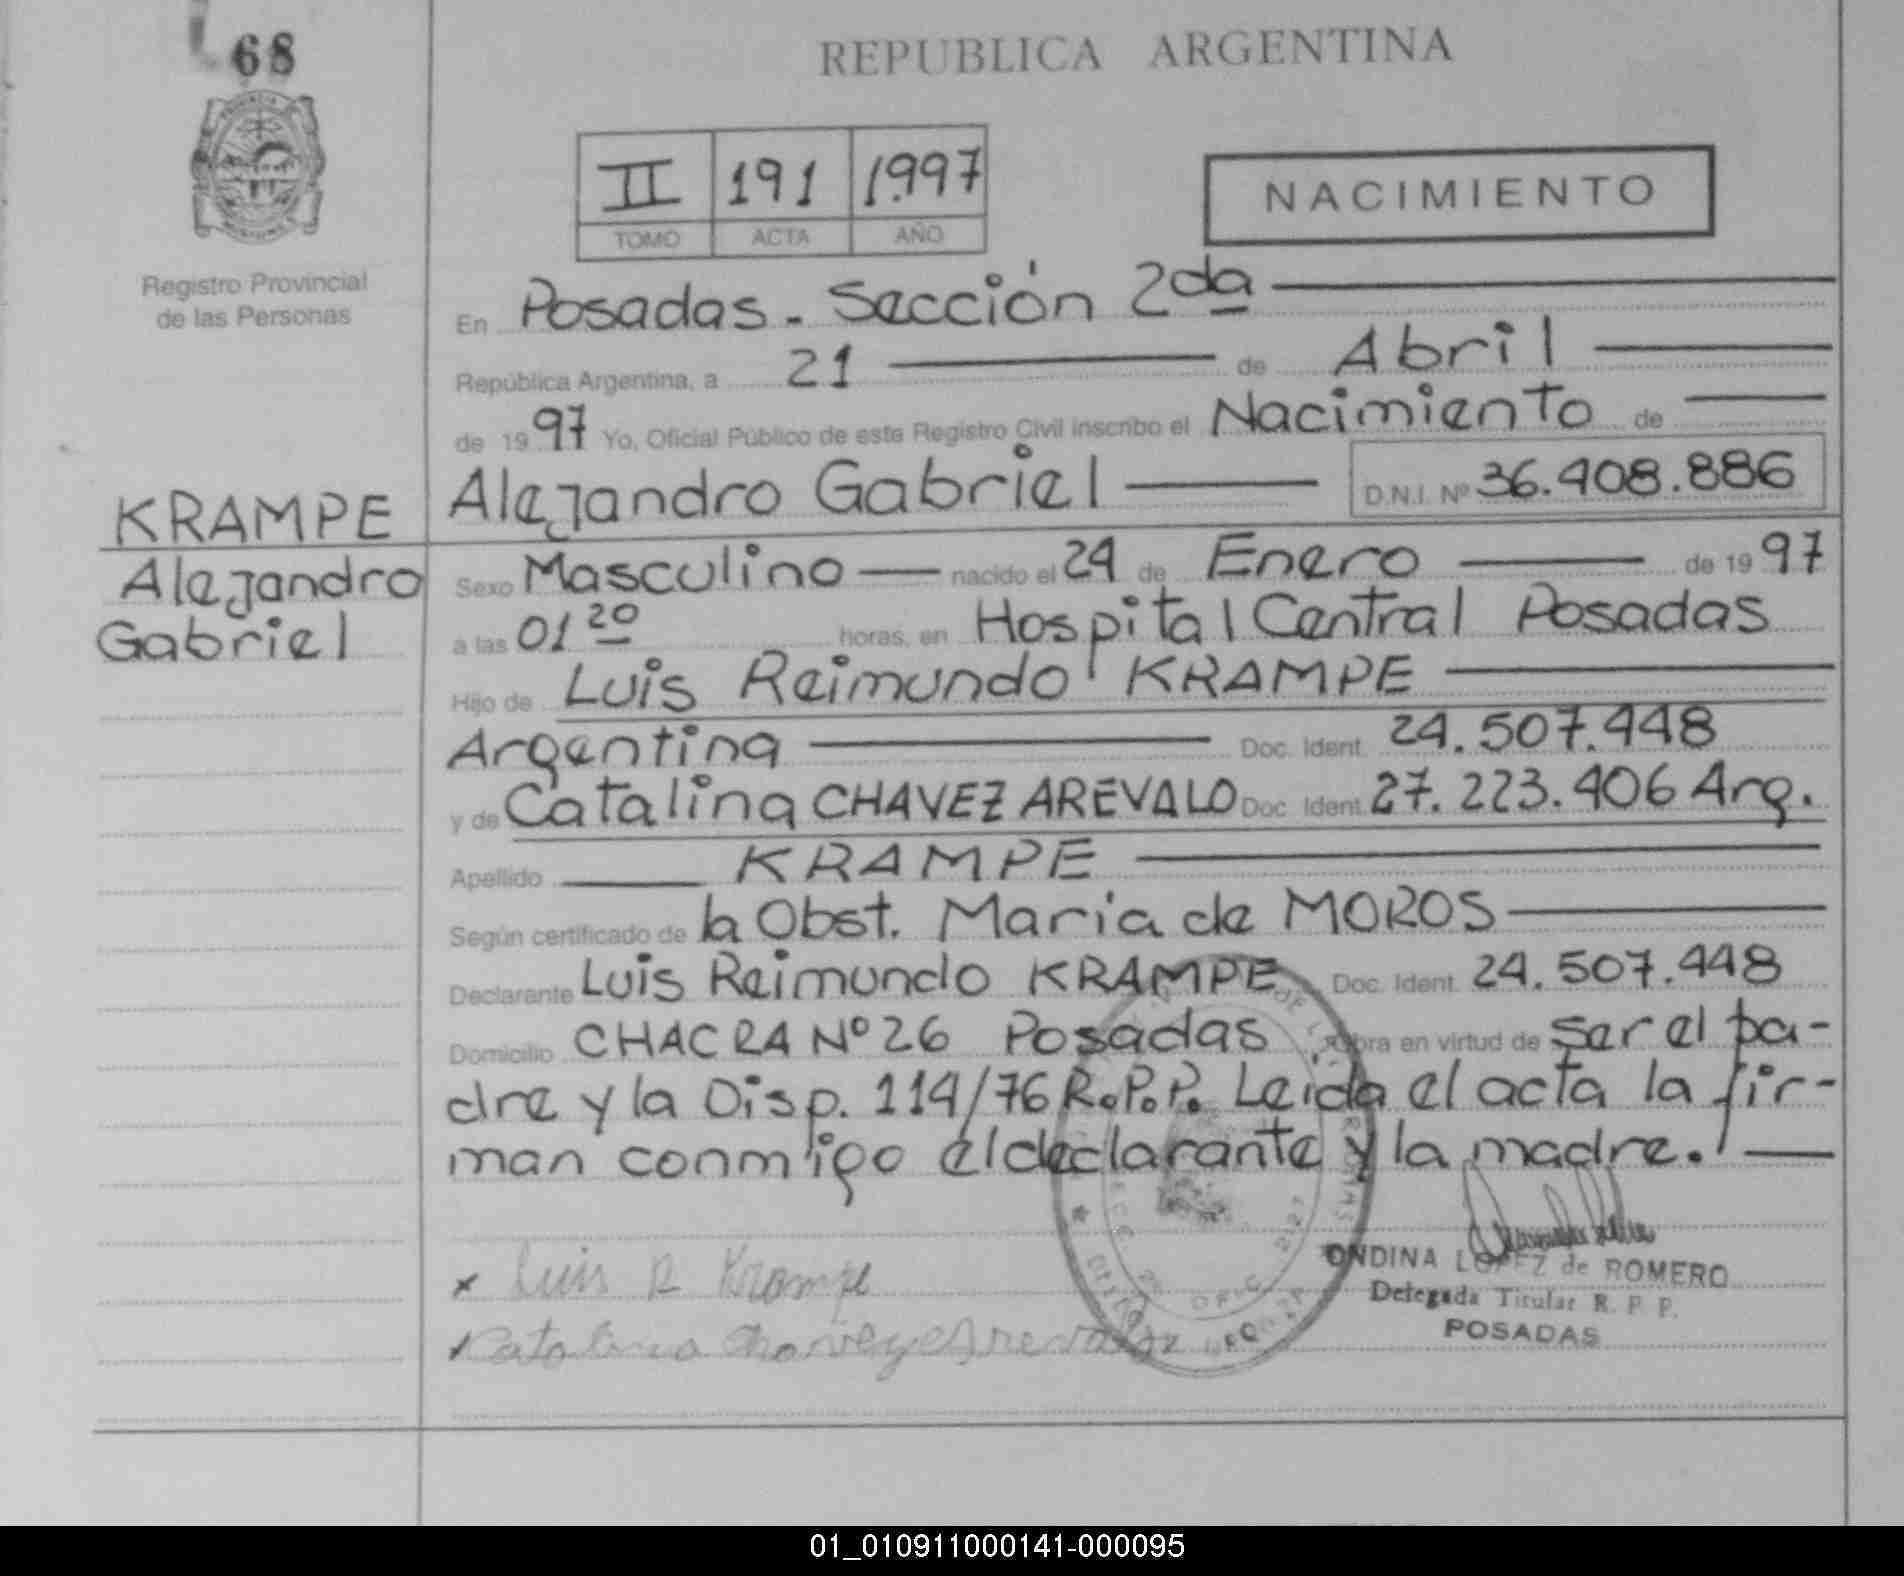 68
REPUBLICA ARGENTINA
II 191 1.997
TOMO ACTA AÑO
NACIMIENTO
Registro Provincial
de las Personas
En Posadas - Sección 2da
República Argentina, a 21 de Abril
de 19 97 Yo, Oficial Público de este Registro Civil inscribo el Nacimiento de
KRAMPE
Alejandro Gabriel
Alejandro Gabriel D.N.I. Nº 36.408.886
Sexo Masculino nacido el 24 de Enero de 19 97
a las 01 20 horas, en Hospital Central Posadas
Hijo de Luis Reimundo KRAMPE
Argentina Doc. Ident. 24.507.448
y de Catalina CHAVEZ AREVALO Doc. Ident. 27.223.406 Arg.
Apellido KRAMPE
Según certificado de la Obst. Maria de MOROS
Declarante Luis Reimundo KRAMPE Doc. Ident. 24.507.448
Domicilio CHACRA Nº 26 Posadas Obra en virtud de ser el pa-
dre y la Disp. 114/76 R.P.P. Leida el acta la fir-
man conmigo el declarante y la madre.
x Luis R Krampe
ONDINA LOPEZ de ROMERO
Delegada Titular R. P. P.
POSADAS
01_010911000141-000095